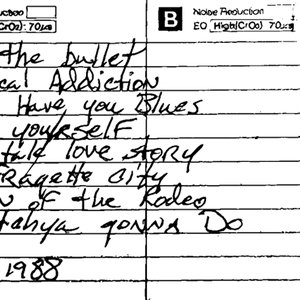 uction B Noise Reduction
CrO2): 70µs EQ High(CrO2) 70µs
the bullet
cal Addiction
Have you Blues
yourself
tale love story
ragette city
n of the Rodeo
tchya gonna Do
1988